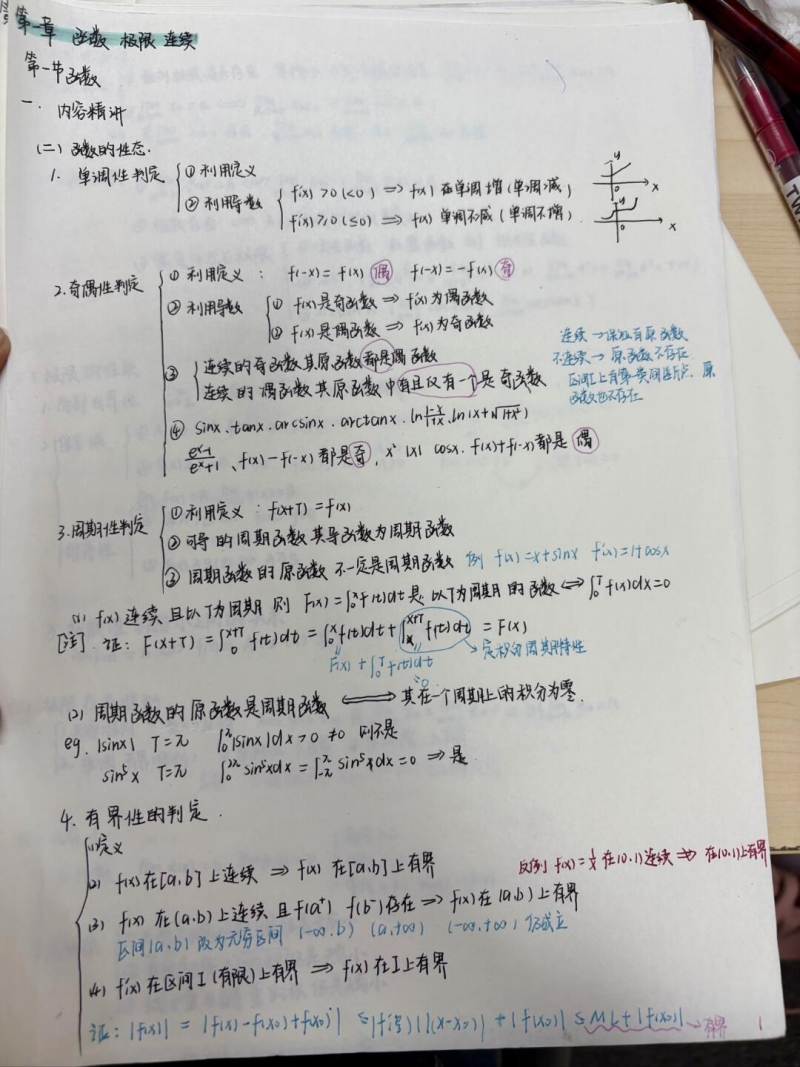 第一章 函数 极限 连续
第一节 函数
一. 内容精讲
(二) 函数的性态.
1. 单调性判定 ① 利用定义
② 利用导数 f'(x) > 0 (<0) ⇒ f(x) 在单调增 (单调减)
f'(x) ≥ 0 (≤0) ⇒ f(x) 单调不减 (单调不增)
y
0 x
y
0 x
2. 奇偶性判定 ① 利用定义: f(-x) = f(x) 偶 f(-x) = -f(x) 奇
② 利用导数 ① f(x) 是奇函数 ⇒ f'(x) 为偶函数
② f(x) 是偶函数 ⇒ f'(x) 为奇函数
③ 连续的奇函数其原函数都是偶函数
连续的偶函数其原函数中有且仅有一个是奇函数
连续 → 保证有原函数
不连续 → 原函数不存在
区间I上有第一类间断点, 原
函数也不存在
④ sinx . tanx . arcsinx . arctanx . ln(1-x)/(1+x) . ln(x+√(1+x²))
(e^x-1)/(e^x+1) 、f(x)-f(-x) 都是奇 , x² |x| cosx . f(x)+f(-x) 都是偶
3. 周期性判定 ① 利用定义 : f(x+T) = f(x)
② 可导的周期函数其导函数为周期函数
③ 周期函数的原函数不一定是周期函数 例 f(x)=x+sinx f'(x)=1+cosx
(1) f(x) 连续且以T为周期 则 F(x)=∫₀ˣf(t)dt 是以T为周期的函数 ⇔ ∫₀ᵀf(x)dx=0
[注] 证: F(x+T) = ∫₀ˣ⁺ᵀ f(t)dt = ∫₀ˣ f(t)dt + ∫ₓˣ⁺ᵀ f(t)dt = F(x)
F(x) + ∫₀ᵀ f(t)dt → 定积分周期特性
0
(2) 周期函数的原函数是周期函数 ⟺ 其在一个周期上的积分为零
eg. |sinx| T=π ∫₀^π |sinx|dx > 0 ≠ 0 则不是
sin⁵x T=π ∫₀^2π sin⁵xdx = ∫₋π^π sin⁵xdx = 0 ⇒ 是
4. 有界性的判定.
(1) 定义
(2) f(x)在[a.b]上连续 ⇒ f(x) 在[a,b]上有界
反例 f(x)=1/x 在(0.1)连续 ⇏ 在(0.1)上有界
(3) f(x) 在(a,b)上连续 且 f(a⁺) f(b⁻)存在 ⇒ f(x)在(a,b)上有界
区间(a,b) 改为无穷区间 (-∞.b) (a,+∞) (-∞,+∞) 仍成立
(4) f'(x)在区间I(有限)上有界 ⇒ f(x)在I上有界
证: |f(x)| = |f(x)-f(x₀)+f(x₀)| ≤ |f'(ξ)||(x-x₀)| + |f(x₀)| ≤ Mk+|f(x₀)| → 有界
1